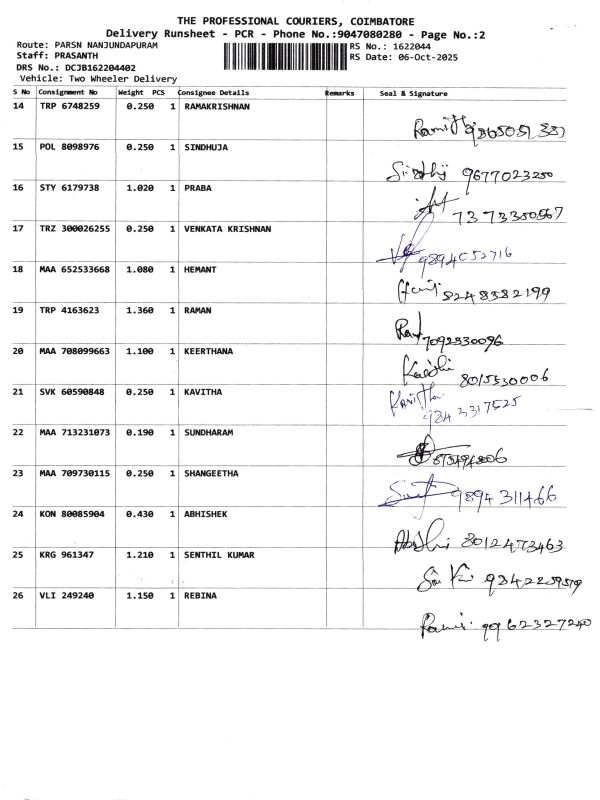 THE PROFESSIONAL COURIERS, COIMBATORE
Delivery Runsheet - PCR - Phone No.:9047080280 - Page No.:2
Route: PARSN NANJUNDAPURAM RS No.: 1622044
Staff: PRASANTH RS Date: 06-Oct-2025
DRS No.: DCJB162204402
Vehicle: Two Wheeler Delivery
S No Consignment No Weight PCS Consignee Details Remarks Seal & Signature
14 TRP 6748259 0.250 1 RAMAKRISHNAN
15 POL 8098976 0.250 1 SINDHUJA
9677023250
16 STY 6179738 1.020 1 PRABA
7373350567
17 TRZ 300026255 0.250 1 VENKATA KRISHNAN
9894052716
18 MAA 652533668 1.080 1 HEMANT
8248382199
19 TRP 4163623 1.360 1 RAMAN
7092330096
20 MAA 708099663 1.100 1 KEERTHANA
8015530006
21 SVK 60590848 0.250 1 KAVITHA
Kavitha
9843317525
22 MAA 713231073 0.190 1 SUNDHARAM
23 MAA 709730115 0.250 1 SHANGEETHA
9894311466
24 KON 80085904 0.430 1 ABHISHEK
8012473463
25 KRG 961347 1.210 1 SENTHIL KUMAR
9842259519
26 VLI 249240 1.150 1 REBINA
9962327240